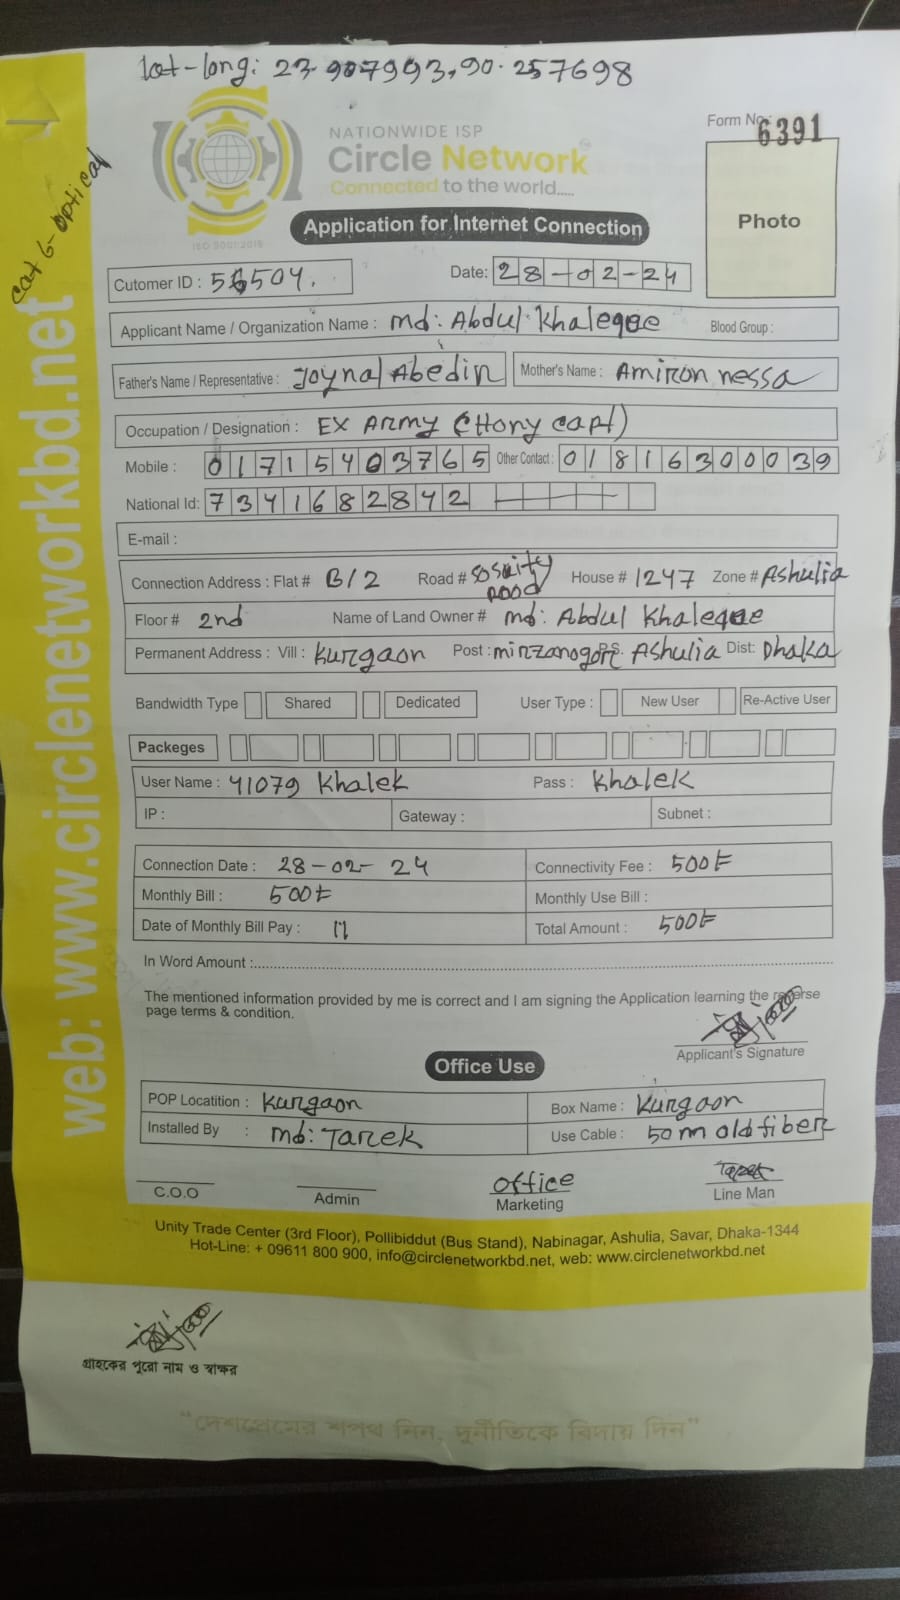 lat-long: 23.907993,90.257698
Form No: 6391
NATIONWIDE ISP
Circle Network
Connected to the world.....
ISO 9001:2015
Cat 6-optical
Application for Internet Connection
Photo
Cutomer ID : 56504.
Date: 28-02-24
Applicant Name / Organization Name : md: Abdul Khaleque Blood Group :
Father's Name / Representative : Joynal Abedin Mother's Name : Amiron nessa
Occupation / Designation : EX Army (Hony capt)
Mobile : 01715403765 Other Contact : 01816300039
National Id: 7341682842
E-mail :
Connection Address : Flat # B/2 Road # sosuity road House # 1247 Zone # Ashulia
Floor # 2nd Name of Land Owner # md: Abdul Khaleque
Permanent Address : Vill : Kurgaon Post : mirzanogor P.S. Ashulia Dist: Dhaka
Bandwidth Type Shared Dedicated User Type : New User Re-Active User
Packeges
User Name : 41079 Khalek Pass : Khalek
IP : Gateway : Subnet :
Connection Date : 28-02-24 Connectivity Fee : 500৳
Monthly Bill : 500৳ Monthly Use Bill :
Date of Monthly Bill Pay : Total Amount : 500৳
In Word Amount :
The mentioned information provided by me is correct and I am signing the Application learning the reverse
page terms & condition.
Applicant's Signature
Office Use
POP Locatition : Kurgaon Box Name : Kurgaon
Installed By : md: Tarek Use Cable : 50m old fiber
C.O.O Admin office Marketing Tarek Line Man
Unity Trade Center (3rd Floor), Pollibiddut (Bus Stand), Nabinagar, Ashulia, Savar, Dhaka-1344
Hot-Line: + 09611 800 900, info@circlenetworkbd.net, web: www.circlenetworkbd.net
web: www.circlenetworkbd.net
গ্রাহকের পুরো নাম ও স্বাক্ষর
"দেশপ্রেমের শপথ নিন, দুর্নীতিকে বিদায় দিন"